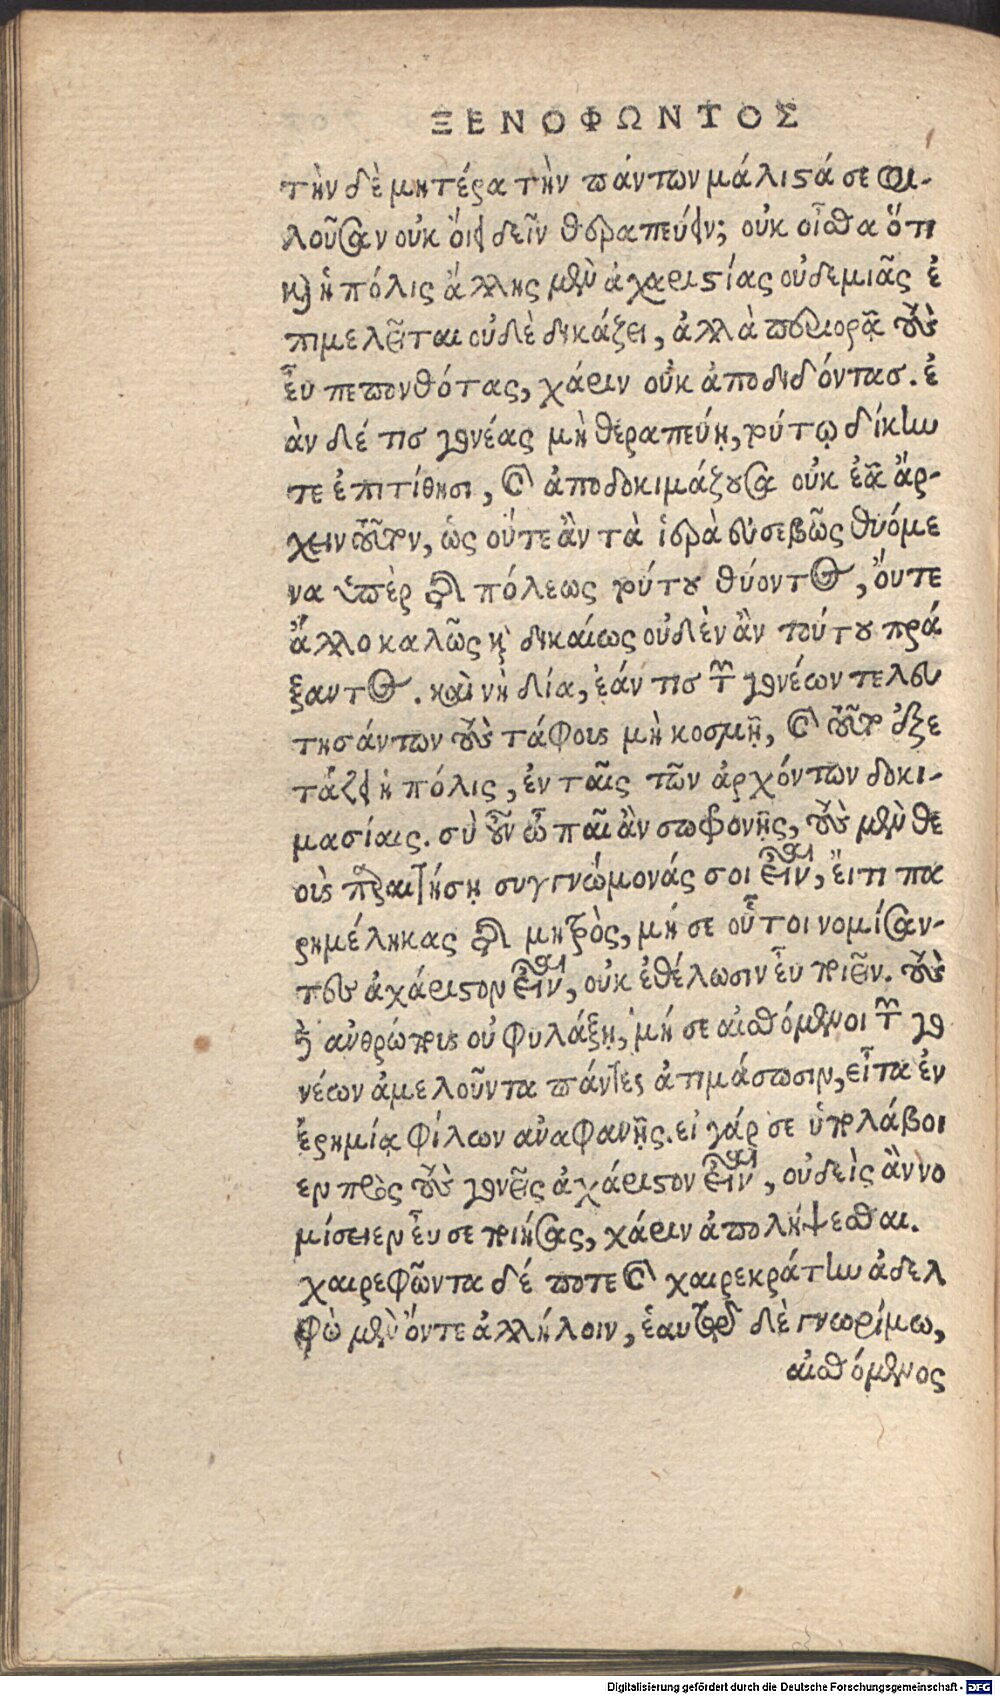 ΞΕΝΟΦΩΝΤΟΣ
τὴν δὲ μητέρα τὴν πάντων μάλιστά σε φι-
λοῦσαν οὐκ ὄιει δεῖν θεραπεύειν; οὐκ οἶσθα ὅτι
καὶ ἡ πόλις ἄλλης μὲν ἀχαριστίας οὐδεμιᾶς ἐ
πιμελεῖται οὐδὲ δικάζει, ἀλλὰ περιορᾷ τοὺς
εὖ πεπονθότας, χάριν οὐκ ἀποδιδόντασ. ἐ
ὰν δέ τισ γονέας μὴ θεραπεύῃ, τούτῳ δίκην
τε ἐπιτίθησι, καὶ ἀποδοκιμάζουσα οὐκ ἐᾷ ἄρ-
χειν τοῦτον, ὡς οὔτε ἂν τὰ ἱερὰ εὐσεβῶς θυόμε
να ὑπὲρ τῆς πόλεως τούτου θύοντος, ὄυτε
ἄλλο καλῶς καὶ δικαίως οὐδὲν ἂν τούτου πρά
ξαντος. καὶ νὴ δία, ἐάν τισ τῶν γονέων τελευ
τησάντων τοὺς τάφους μὴ κοσμῇ, καὶ τοῦτο ἐξε
τάζει ἡ πόλις, ἐν ταῖς τῶν ἀρχόντων δοκι-
μασίαις. σὺ οὖν ὦ παῖ ἂν σωφρονῇς, τοὺς μὲν θε
οὺς παραιτήσῃ συγγνώμονάς σοι εἶναι, ἔιτι πα
ρημέληκας τῆς μητρὸς, μή σε οὗτοι νομίσαν-
τες ἀχάριστον εἶναι, οὐκ ἐθέλωσιν εὖ ποιεῖν. τοὺς
δὲ ἀνθρώπους οὐ φυλάξῃ, μή σε αἰσθόμενοι τῶν γο
νέων ἀμελοῦντα πάντες ἀτιμάσωσιν, εἶτα ἐν
ἐρημίᾳ φίλων ἀναφανῇς. εἰ γάρ σε ὑπολάβοι
εν πρὸς τοὺς γονεῖς ἀχάριστον εἶναι, οὐδεὶς ἂν νο
μίσειεν εὖ σε ποιήσας, χάριν ἀπολήψεσθαι.
χαιρεφῶντα δέ ποτε καὶ χαιρεκράτην ἀδελ
φὼ μὲν ὄντε ἀλλήλοιν, ἑαυτῷ δὲ γνωρίμω,
αἰσθόμενος
Digitalisierung gefördert durch die Deutsche Forschungsgemeinschaft - DFG